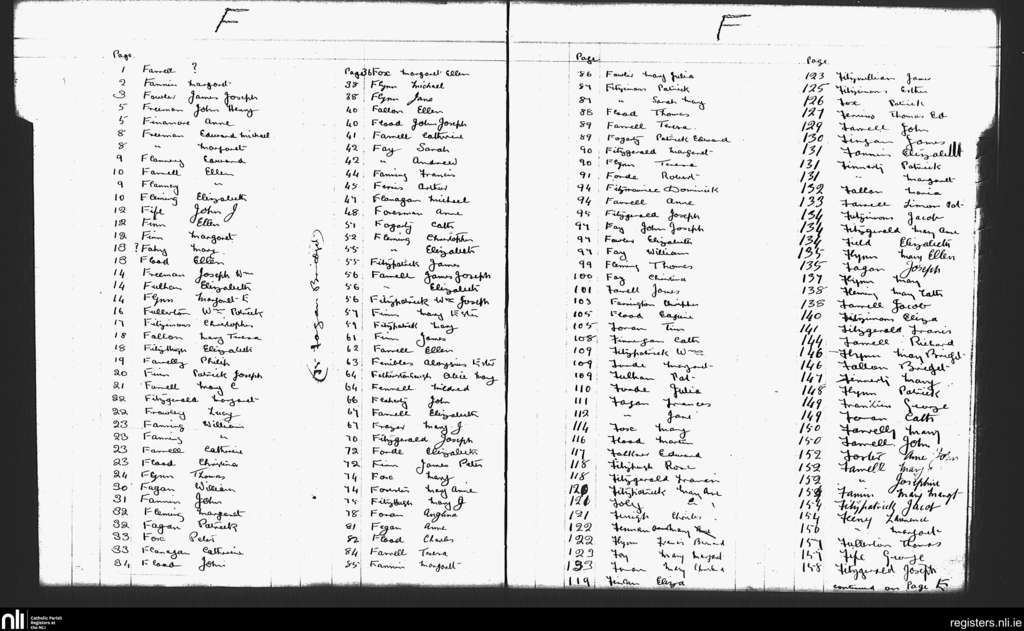 F
Page
1 Farrell ?
2 Fannin Margaret
3 Fowler James Joseph
5 Freeman John Henry
5 Finamore Anne
8 Freeman Edward Michael
8 " Margaret
9 Flannery Edward
10 Farrell Ellen
9 Flannery "
10 Fleming Elizabeth
12 Fife John J
12 Finn Ellen
12 Finn Margaret
13 ? Fahy Mary
13 Flood Ellen
14 Freeman Joseph Wm
14 Fulham Elizabeth
14 Flynn Margaret E
16 Fullerton Wm Patrick
17 Fitzsimons Christopher
18 Fallon Mary Teresa
18 FitzHugh Elizabeth
19 Farrelly Philip
20 Finn Patrick Joseph
21 Farrell Mary C
22 Fitzgerald Margaret
22 Frawley Lucy
23 Fanning William
23 Fanning "
23 Farrell Catherine
23 Flood Christina
24 Flynn Thomas
30 Fagan William
31 Fannin John
32 Fleming Margaret
32 Fagan Patrick
33 Fox Peter
33 Flanagan Catherine
34 Flood John
Page 36 Fox Margaret Ellen
38 Flynn Michael
38 Flynn Jane
40 Fallon Ellen
40 Flood John Joseph
41 Farrell Catherine
42 Fay Sarah
42 " Andrew
44 Fanning Francis
45 Ferris
47 Flanagan Michael
48 Foreman Anne
51 Fogarty Cath
52 Fleming Christopher
55 " Elizabeth
55 Fitzpatrick James
56 Farrell James Joseph
56 " Elizabeth
56 Fitzpatrick Wm Joseph
57 Finn Mary
59 Fitzpatrick Mary
61 Finn James
62 Farrell Ellen
63 Aloysius
64 Alice Mary
64 Fennell Mildred
66 John
67 Farrell Elizabeth
67 Frazer Mary J
70 Fitzgerald Joseph
72 Forde Elizabeth
72 Finn James Peter
74 Fox Mary
74 Mary Anne
75 FitzHugh Mary J
78 Foran
81 Fegan Anne
82 Flood Charles
84 Farrell Teresa
85 Fannin Margaret
(35 Fagan Bridget)
F
Page
86 Fowler Mary Julia
87 Fitzsimon Patrick
87 " Sarah Mary
88 Flood Thomas
89 Farrell Teresa
89 Fogarty Patrick Edward
90 Fitzgerald Margaret
90 Flynn Teresa
91 Forde Robert
94 Fitzmaurice Dominick
94 Farrell Anne
95 Fitzgerald Joseph
97 Fay John Joseph
97 Fowler Elizabeth
97 Fay William
99 Thomas
100 Fay Christina
101 Farrell James
103 Farrington Christopher
105 Flood Eugene
105 Foran
108 Finnegan Cath
109 Fitzpatrick Wm
109 Forde Margaret
109 Fulham Pat
110 Forde Julia
111 Fagan Frances
112 " Jane
114 Fox Mary
116 Flood Martin
117 Falkner Edward
118 FitzHugh Rose
118 Fitzgerald Francis
120 Fitzpatrick Mary Anne
121 "
121 Charles
122
122 Flynn Francis Bernard
123 Fay Mary Margaret
123 Mary
119 Eliza
Page
123 Fitzwilliam James
125 Fitzsimons Esther
126 Fox Patrick
127 Thomas Ed
129 Farrell John
130 James
131 Fannin Elizabeth
131 Finnerty Patrick
131 " Margaret
132 Fallon Maria
133 Farrell Simon Pat
134 Fitzsimons Jacob
134 Fitzgerald Mary Anne
134 Field Elizabeth
135 Flynn Mary Ellen
135 Fagan Joseph
137 Flynn Mary
138 Fleming Mary Cath
138 Farrell Jacob
140 Fitzsimons Eliza
141 Fitzgerald Francis
144 Farrell Richard
146 Flynn Mary Bridget
146 Fallon Bridget
147 Finnerty Mary
148 Flynn Patrick
149 Franklin George
149 Foran Cath
150 Farrelly Mary
150 Farrell John
152 Foster Anne John
152 Farrell Mary
152 " Josephine
154 Fannin Mary Margt
154 Fitzpatrick Jacob
154 Feeny Laurence
156 " Margaret
157 Fullerton Thomas
157 Fife George
158 Fitzgerald Joseph
continued on Page
nli
Catholic Parish
Registers at
the NLI
registers.nli.ie